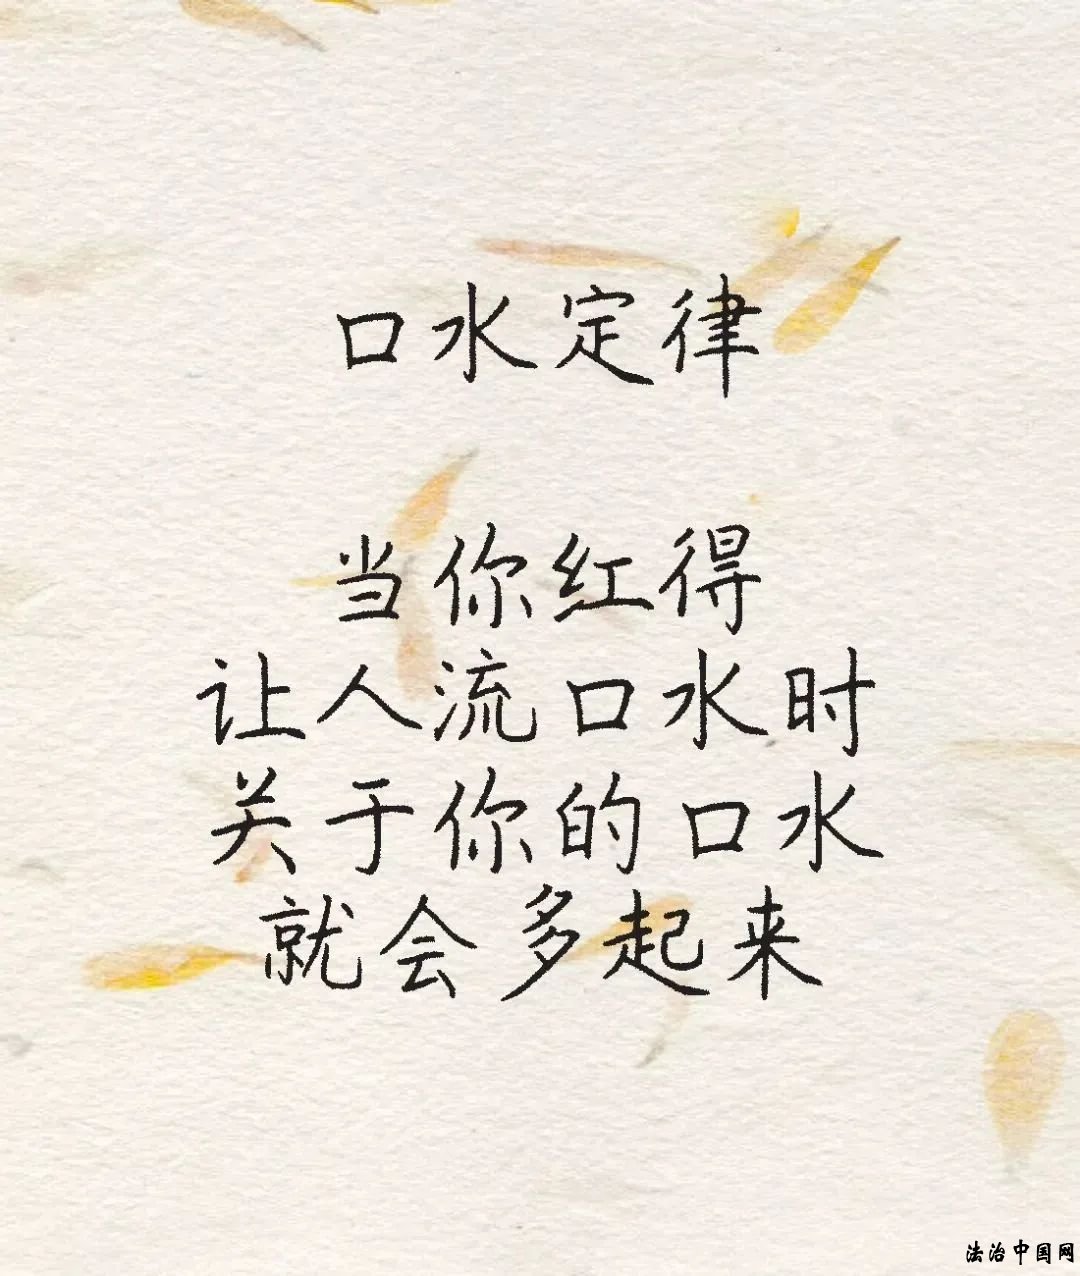 口水定律
当你红得
让人流口水时
关于你的口水
就会多起来
法治中国网